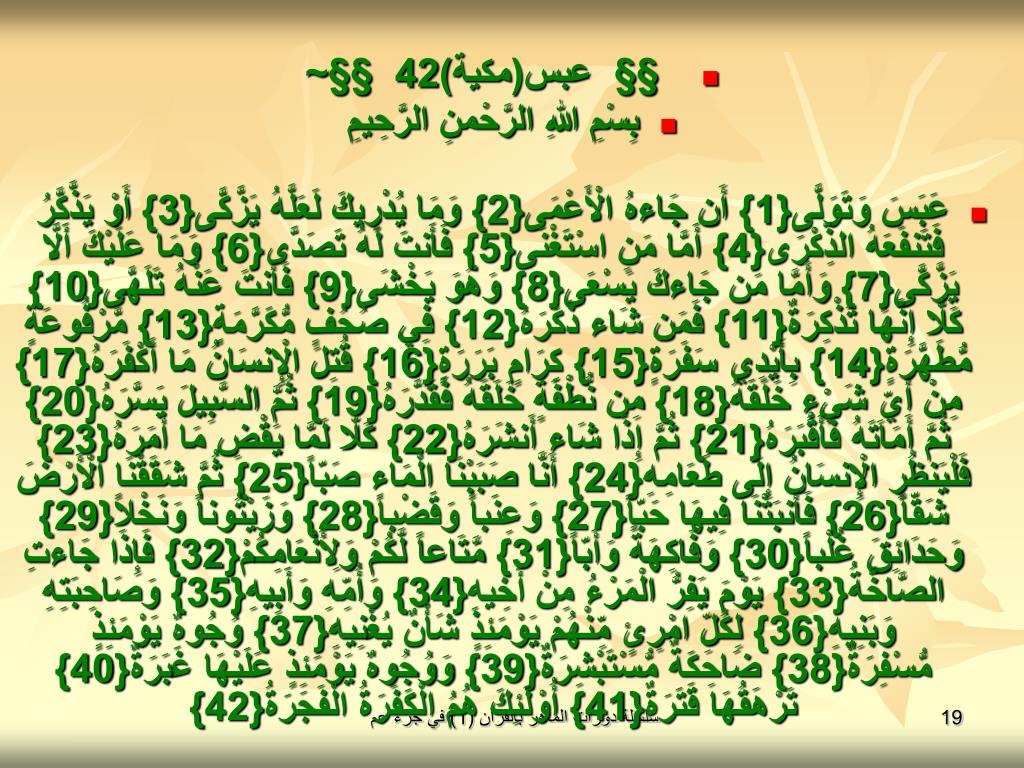 §§ عبس(مكية)42 §§~
بِسْمِ اللهِ الرَّحْمنِ الرَّحِيمِ
عَبَسَ وَتَوَلَّى{1} أَن جَاءهُ الْأَعْمَى{2} وَمَا يُدْرِيكَ لَعَلَّهُ يَزَّكَّى{3} أَوْ يَذَّكَّرُ
فَتَنفَعَهُ الذِّكْرَى{4} أَمَّا مَنِ اسْتَغْنَى{5} فَأَنتَ لَهُ تَصَدَّى{6} وَمَا عَلَيْكَ أَلَّا
يَزَّكَّى{7} وَأَمَّا مَن جَاءكَ يَسْعَى{8} وَهُوَ يَخْشَى{9} فَأَنتَ عَنْهُ تَلَهَّى{10}
كَلَّا إِنَّهَا تَذْكِرَةٌ{11} فَمَن شَاء ذَكَرَهُ{12} فِي صُحُفٍ مُّكَرَّمَةٍ{13} مَّرْفُوعَةٍ
مُّطَهَّرَةٍ{14} بِأَيْدِي سَفَرَةٍ{15} كِرَامٍ بَرَرَةٍ{16} قُتِلَ الْإِنسَانُ مَا أَكْفَرَهُ{17}
مِنْ أَيِّ شَيْءٍ خَلَقَهُ{18} مِن نُّطْفَةٍ خَلَقَهُ فَقَدَّرَهُ{19} ثُمَّ السَّبِيلَ يَسَّرَهُ{20}
ثُمَّ أَمَاتَهُ فَأَقْبَرَهُ{21} ثُمَّ إِذَا شَاء أَنشَرَهُ{22} كَلَّا لَمَّا يَقْضِ مَا أَمَرَهُ{23}
فَلْيَنظُرِ الْإِنسَانُ إِلَى طَعَامِهِ{24} أَنَّا صَبَبْنَا الْمَاء صَبّاً{25} ثُمَّ شَقَقْنَا الْأَرْضَ
شَقّاً{26} فَأَنبَتْنَا فِيهَا حَبّاً{27} وَعِنَباً وَقَضْباً{28} وَزَيْتُوناً وَنَخْلاً{29}
وَحَدَائِقَ غُلْباً{30} وَفَاكِهَةً وَأَبّاً{31} مَّتَاعاً لَّكُمْ وَلِأَنْعَامِكُمْ{32} فَإِذَا جَاءتِ
الصَّاخَّةُ{33} يَوْمَ يَفِرُّ الْمَرْءُ مِنْ أَخِيهِ{34} وَأُمِّهِ وَأَبِيهِ{35} وَصَاحِبَتِهِ
وَبَنِيهِ{36} لِكُلِّ امْرِئٍ مِّنْهُمْ يَوْمَئِذٍ شَأْنٌ يُغْنِيهِ{37} وُجُوهٌ يَوْمَئِذٍ
مُّسْفِرَةٌ{38} ضَاحِكَةٌ مُّسْتَبْشِرَةٌ{39} وَوُجُوهٌ يَوْمَئِذٍ عَلَيْهَا غَبَرَةٌ{40}
تَرْهَقُهَا قَتَرَةٌ{41} أُوْلَئِكَ هُمُ الْكَفَرَةُ الْفَجَرَةُ{42}
سلسلة دورات الماهر بالقرآن (1) في جزء عم
19